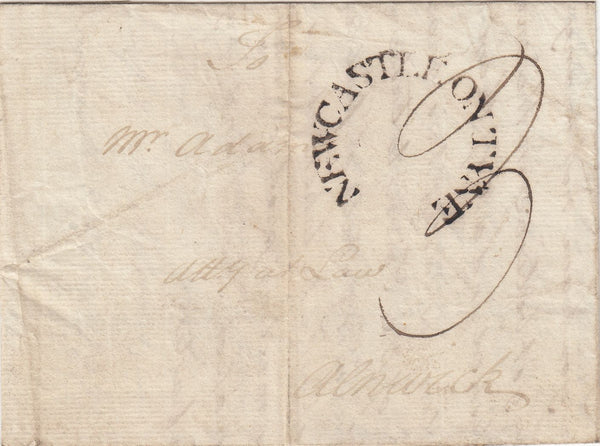 To
NEWCASTLE ON TYNE
3
Mr. Adam
Atty at Law
Alnwick